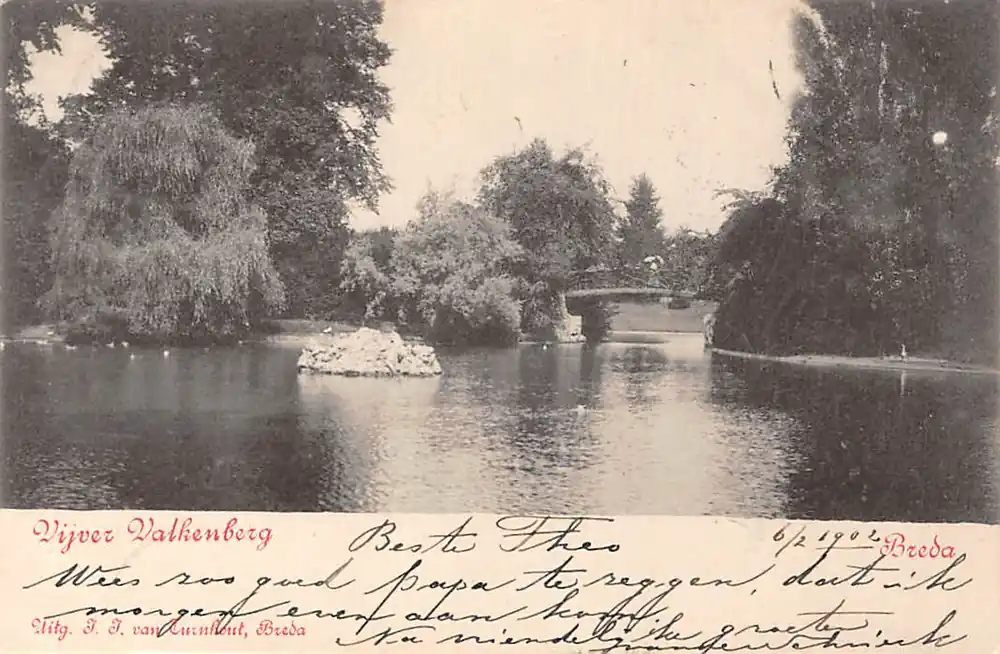 Vijver Valkenberg
Beste Theo
6/2 1902
Breda
Wees zoo goed papa te zeggen, dat ik
morgen even aan kom
Uitg. J. J. van Turnhout, Breda
Na vriendelijke groeten